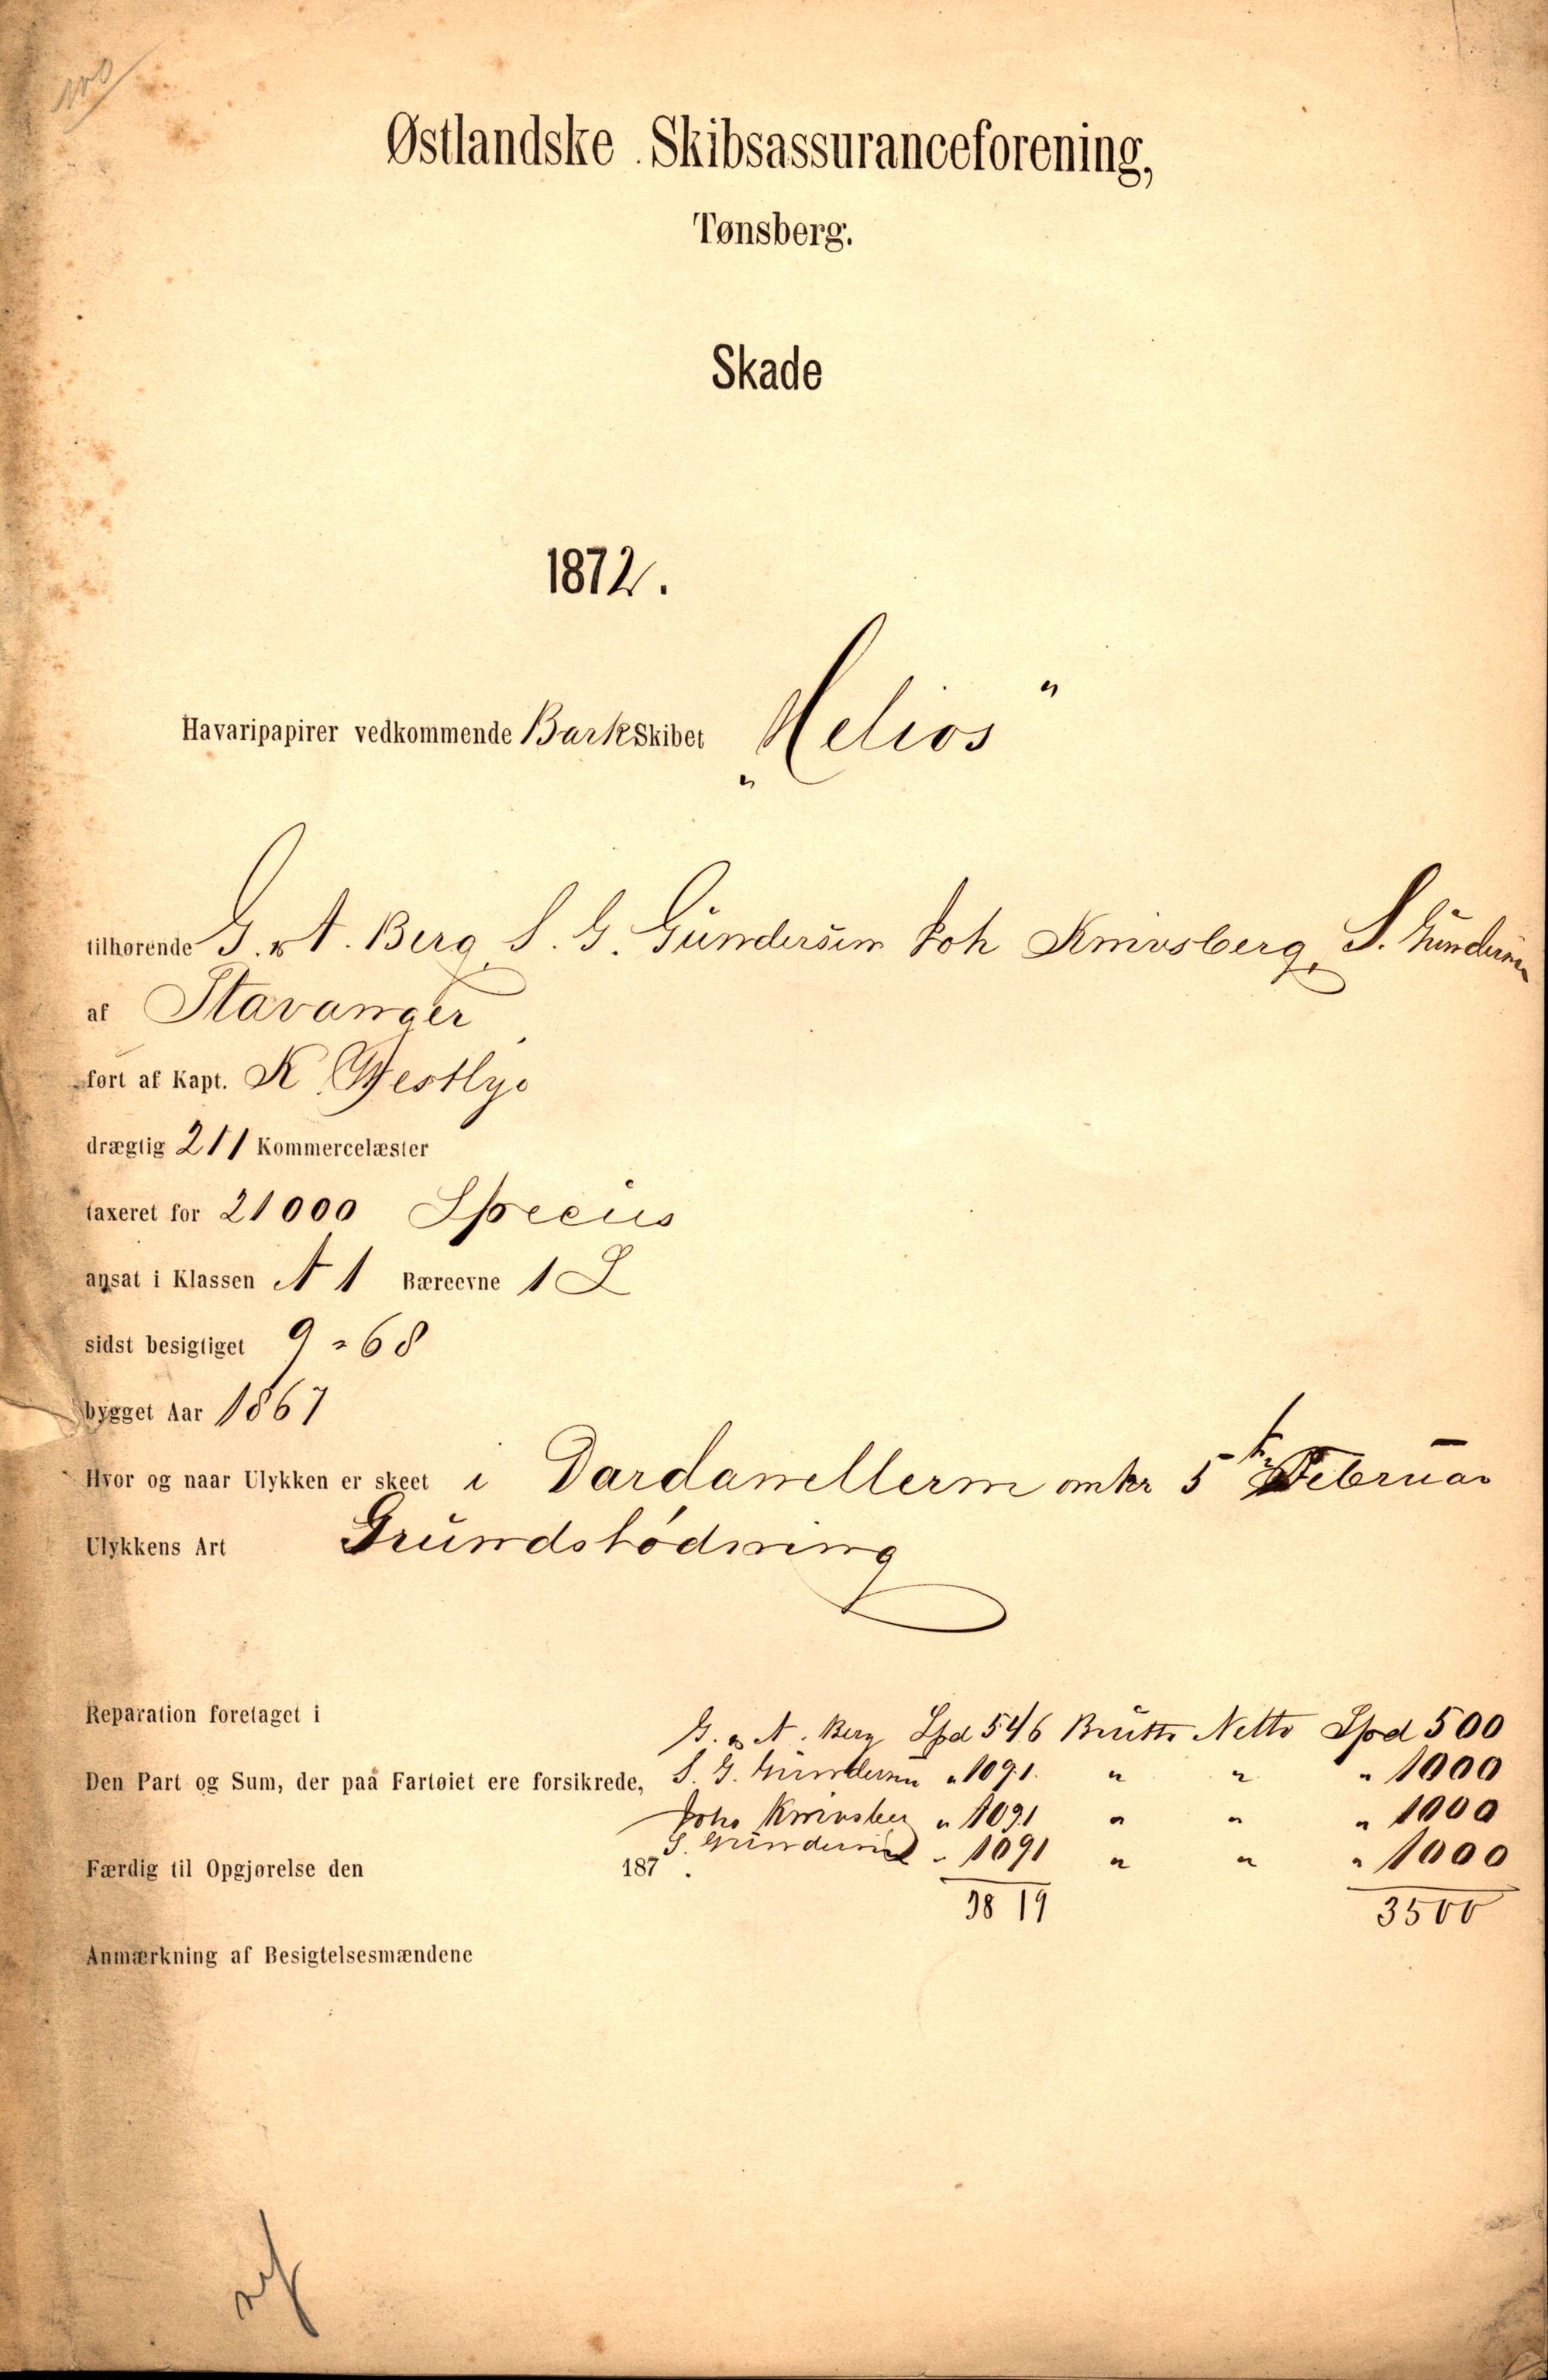 Østlandske Skibsassuranceforening,
Tønsberg.
Skade
1872.
Havaripapirer vedkommende Bark Skibet „Helios"
tilhørende G. & A. Berg, S. G. Gundersen Joh Knivsberg, S. Gundersen
af Stavanger
ført af Kapt. K. Westlye
drægtig 211 Kommercelæster
taxeret for 21000 Specius
ansat i Klassen A 1 Bæreevne 1 L
sidst besigtiget 9-68
bygget Aar 1867
Hvor og naar Ulykken er skeet i Dardanellerne omkr 5te Februar
Ulykkens Art Grundstødning
Reparation foretaget i
G. & A. Berg Spd 546 Brutto Netto Spd 500
Den Part og Sum, der paa Fartøiet ere forsikrede, S. G. Gundersen " 1091. " " " 1000
Johs Knivsberg " 1091 " " " 1000
S. Gundersen " 1091 " " " 1000
Færdig til Opgjørelse den 187 .
3819 3500
Anmærkning af Besigtelsesmændene